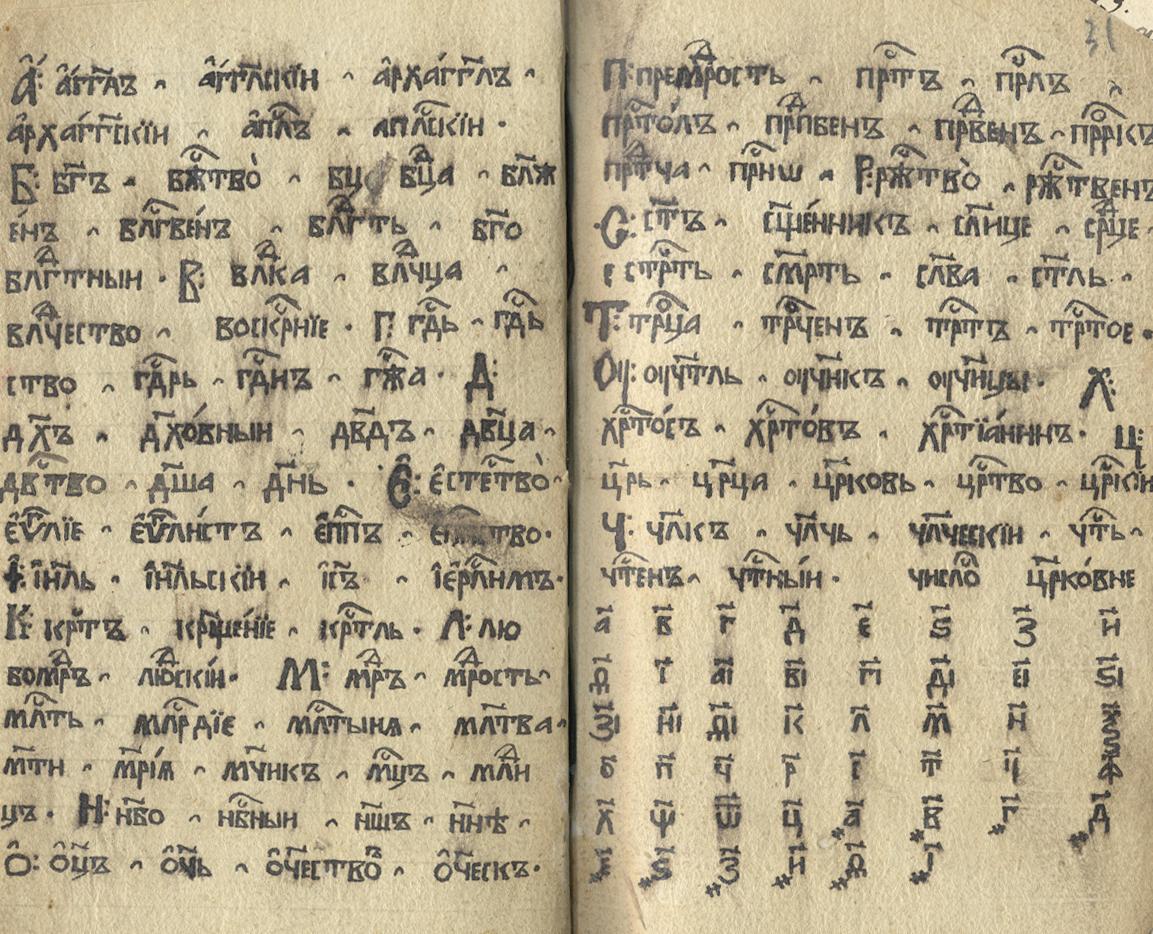 А҃: а҆́гг҃лъ ~ а҆́гг҃лскїи ~ а҆рха́гг҃лъ ~
а҆рха́гг҃скїи ~ а҆пⷭ҇лъ ~ апⷭ҇лскїи ·
Б: бг҃ъ ~ бжⷭ҇тво̀ ~ бц ~ бцⷣа ~ блж҃
е́нъ ~ блг҃ве́нъ ~ блгⷣть ~ бг҃о
блгⷣтныи · В: влⷣка ~ влⷣчца ~
влⷣчество ~ воскрⷭ҇нїе · Г: гдⷭ҇ь ~ гдⷭ҇ь
ство ~ гдⷭ҇рь ~ гдⷭ҇нъ ~ гжⷭ҇а · Д:
дх҃ъ ~ дх҃о́вныи ~ дв҃дъ ~ дв҃ца ~
двⷭ҇тво ~ дш҃а ~ дн҃ь · Є҆: є҆стеⷭ҇тво̀ ~
є҆ѵⷢ҇лїе ~ є҆ѵⷢ҇ли́стъ ~ є҆пⷭ҇пъ ~
І҆: і҆и҃ль · і҆и҃льскїи · іс҃ъ ~ і҆ерⷭ҇лимъ ·
К: крⷭ҇тъ ~ крщ҃е́нїе ~ крⷭ҇тль · Л: лю
бомрⷣъ ~ лю́дⷭ҇скїи · М: мрⷣъ ~ мрⷣость ~
млⷭ҇ть ~ млⷭ҇рдїе ~ млⷭ҇тынѧ ~ мл҃тва ~
мт҃и ~ мр҃і́ѧ ~ мч҃икъ ~ мцⷭ҇ъ ~ млⷣи
цъ · Н: нб҃о ~ нбⷭ҇ныи ~ нш҃ъ ~ нн҃ѣ ~
О҆: о҆ц҃ъ ~ о҆ч҃ь ~ о҆ч҃ество ~ о҆ч҃ескъ ·
П: премрⷣость ~ прⷭ҇тъ ~ прⷭ҇лъ ~
прⷭ҇то́лъ ~ прⷣпбенъ ~ прⷣвенъ ~ прⷪ҇ркъ
прⷣтча ~ прⷭ҇ниш ~ Р: ржⷭ҇тво̀ ~ ржⷭ҇твенъ
С: ст҃ъ ~ сщ҃е́нникъ ~ сл҃нце ~ срⷣце ~
стрⷭ҇ть ~ см҃рть ~ сл҃ва ~ ст҃ль ~
Т: трⷪ҇ца ~ трⷪ҇ченъ ~ трⷭ҇тъ ~ трⷭ҇тое ·
Оу: оучт҃ль ~ оуч҃нкъ ~ оуч҃ницы · Х:
хрⷭ҇то́съ ~ хрⷭ҇то́въ ~ хрⷭ҇тїа́нинъ · Ц:
цр҃ь ~ цр҃ца ~ цр҃ковь ~ црⷭ҇тво ~ црⷭ҇кїи
Ч: чл҃къ ~ чл҃чь ~ чл҃ческїи ~ чтⷭ҇ь ~
чтⷭ҇енъ ~ чтⷭ҇ны́и · число̀ цр҃ко́вне
а҃ в҃ г҃ д҃ е҃ ѕ҃ з҃ и҃
ѳ҃ і҃ аі҃ ві҃ гі҃ ді҃ еі҃ ѕі҃
зі҃ иі҃ ѳі҃ к҃ л҃ м҃ н҃ ѯ҃
о҃ п҃ ч҃ р҃ с҃ т҃ у҃ ф҃
х҃ ѱ҃ ѿ҃ ц҃ ҂а҃ ҂в҃ ҂г҃ ҂д҃
҂е҃ ҂ѕ҃ ҂з҃ ҂и҃ ҂ѳ҃ ҂і҃